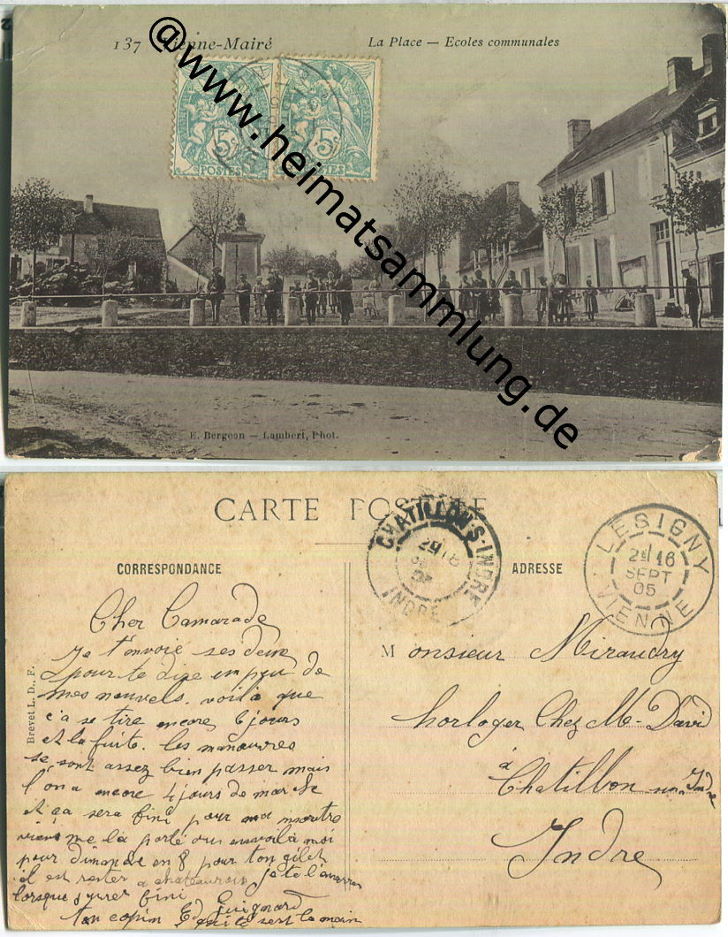 137 Vienne-Mairé
La Place — Ecoles communales
5c 5c
POSTES POSTES
@www.heimatsammlung.de
E. Bergeon — Lambert, Phot.
CARTE POSTALE
CORRESPONDANCE
ADRESSE
CHATILLON-S-INDRE
INDRE
LESIGNY
16
SEPT
05
VIENNE
Brevet L. D., F.
Cher Camarade
Je t'envoie ses deux
pour te dire un peu de
mes nouvels. voilà que
ç'a se tire encore 6 jours
et la fuite. les manœuvres
se sont assez bien passer mais
l'on a encore 4 jours de marche
et ça sera fini pour ma montre
viens me la porté ou envoilà moi
pour dimanche en 8 pour ton gilet
il est rester a chateauroux je te l'
lorsque j'orrer fini
ton copin Ed. Guignard
qui te sert la main
Monsieur Miraudry
horloger Chez Mr David
à
Chatillon-sur-Indre
Indre